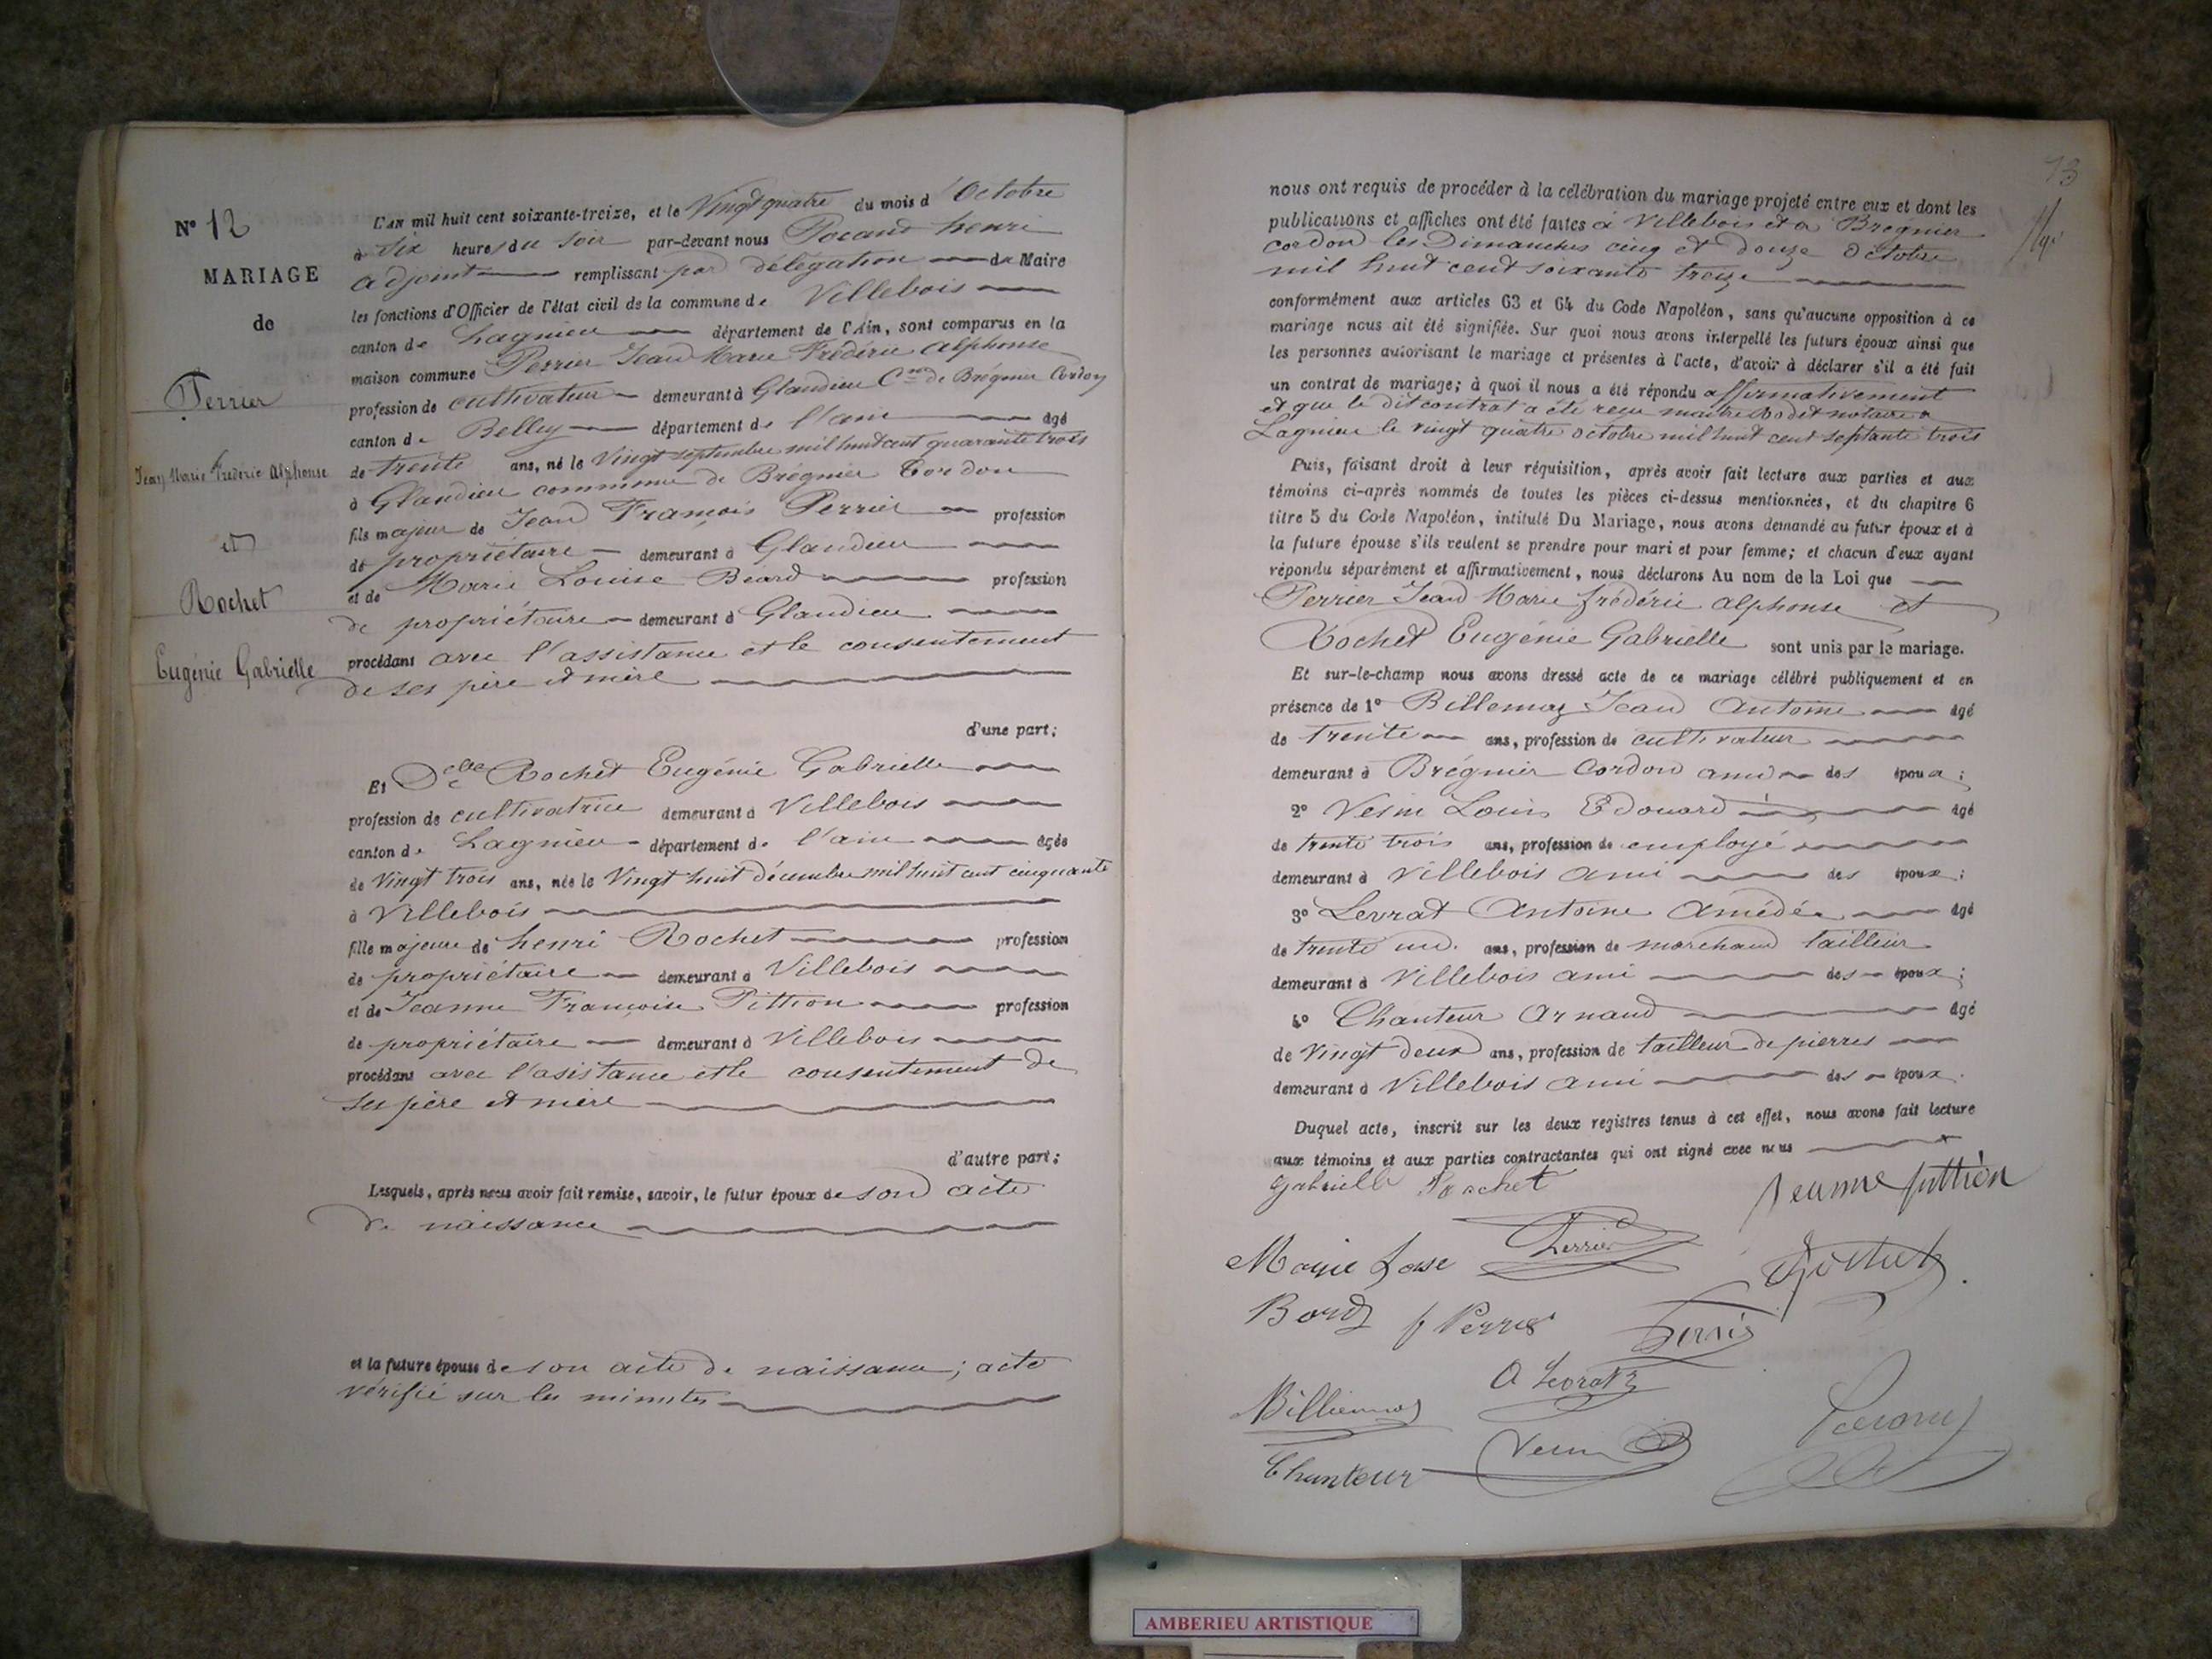 N° 12
MARIAGE
de
Perrier
Jean Marie Frédéric Alphonse
et
Rochet
Eugénie Gabrielle
L'AN mil huit cent soixante-treize, et le Vingt quatre du mois d'Octobre
à Six heures du soir par-devant nous Pocand henri
adjoint remplissant par délégation du Maire
les fonctions d'Officier de l'état civil de la commune de Villebois
canton de Lagnieu département de l'Ain, sont comparus en la
maison commune Perrier Jean Marie Frédéric Alphonse
profession de cultivateur demeurant à Glandieu Cne de Brégnier Cordon
canton de Belley département de l'ain âgé
de trente ans, né le Vingt septembre mil huit cent quarante trois
à Glandieu commune de Brégnier Cordon
fils majeur de Jean François Perrier profession
de propriétaire demeurant à Glandieu
et de Marie Louise Béard profession
de propriétaire demeurant à Glandieu
procédant avec l'assistance et le consentement
de ses père et mère
d'une part;
Et Delle Rochet Eugénie Gabrielle
profession de cultivatrice demeurant à Villebois
canton de Lagnieu département de l'ain âgée
de Vingt trois ans, née le Vingt huit décembre mil huit cent cinquante
à Villebois
fille majeure de henri Rochet profession
de propriétaire demeurant à Villebois
et de Jeanne Françoise Pittion profession
de propriétaire demeurant à Villebois
procédant avec l'asistance et le consentement de
ses père et mère
d'autre part;
Lesquels, après nous avoir fait remise, savoir, le futur époux de son acte
de naissance
et la future épouse de son acte de naissance; acte
vérifié sur les minutes
73
nous ont requis de procéder à la célébration du mariage projeté entre eux et dont les
publications et affiches ont été faites à Villebois et à Brégnier
cordon les Dimanches cinq et douze Octobre
mil huit cent soixante treize
conformément aux articles 63 et 64 du Code Napoléon, sans qu'aucune opposition à ce
mariage nous ait été signifiée. Sur quoi nous avons interpellé les futurs époux ainsi que
les personnes autorisant le mariage et présentes à l'acte, d'avoir à déclarer s'il a été fait
un contrat de mariage; à quoi il nous a été répondu affirmativement
et que le dit contrat a été reçu maître Rodet notaire à
Lagnieu le vingt quatre octobre mil huit cent septante trois
Puis, faisant droit à leur réquisition, après avoir fait lecture aux parties et aux
témoins ci-après nommés de toutes les pièces ci-dessus mentionnées, et du chapitre 6
titre 5 du Code Napoléon, intitulé Du Mariage, nous avons demandé au futur époux et à
la future épouse s'ils veulent se prendre pour mari et pour femme; et chacun d'eux ayant
répondu séparément et affirmativement, nous déclarons Au nom de la Loi que
Perrier Jean Marie frédéric alphonse et
Rochet Eugénie Gabrielle sont unis par le mariage.
Et sur-le-champ nous avons dressé acte de ce mariage célébré publiquement et en
présence de 1° Billemaz Jean Antoine âgé
de trente ans, profession de cultivateur
demeurant à Brégnier Cordon ami des époux;
2° Vesin Louis Edouard âgé
de trente trois ans, profession de employé
demeurant à Villebois ami des époux;
3° Levrat Antoine Amédée âgé
de trente un ans, profession de marchand tailleur
demeurant à Villebois ami des époux;
4° Chanteur Arnaud âgé
de Vingt deux ans, profession de tailleur de pierres
demeurant à Villebois ami des époux.
Duquel acte, inscrit sur les deux registres tenus à cet effet, nous avons fait lecture
aux témoins et aux parties contractantes qui ont signé avec nous
Gabrielle Rochet Jeanne pittion
Perrier
A Levrat
Chanteur
AMBERIEU ARTISTIQUE